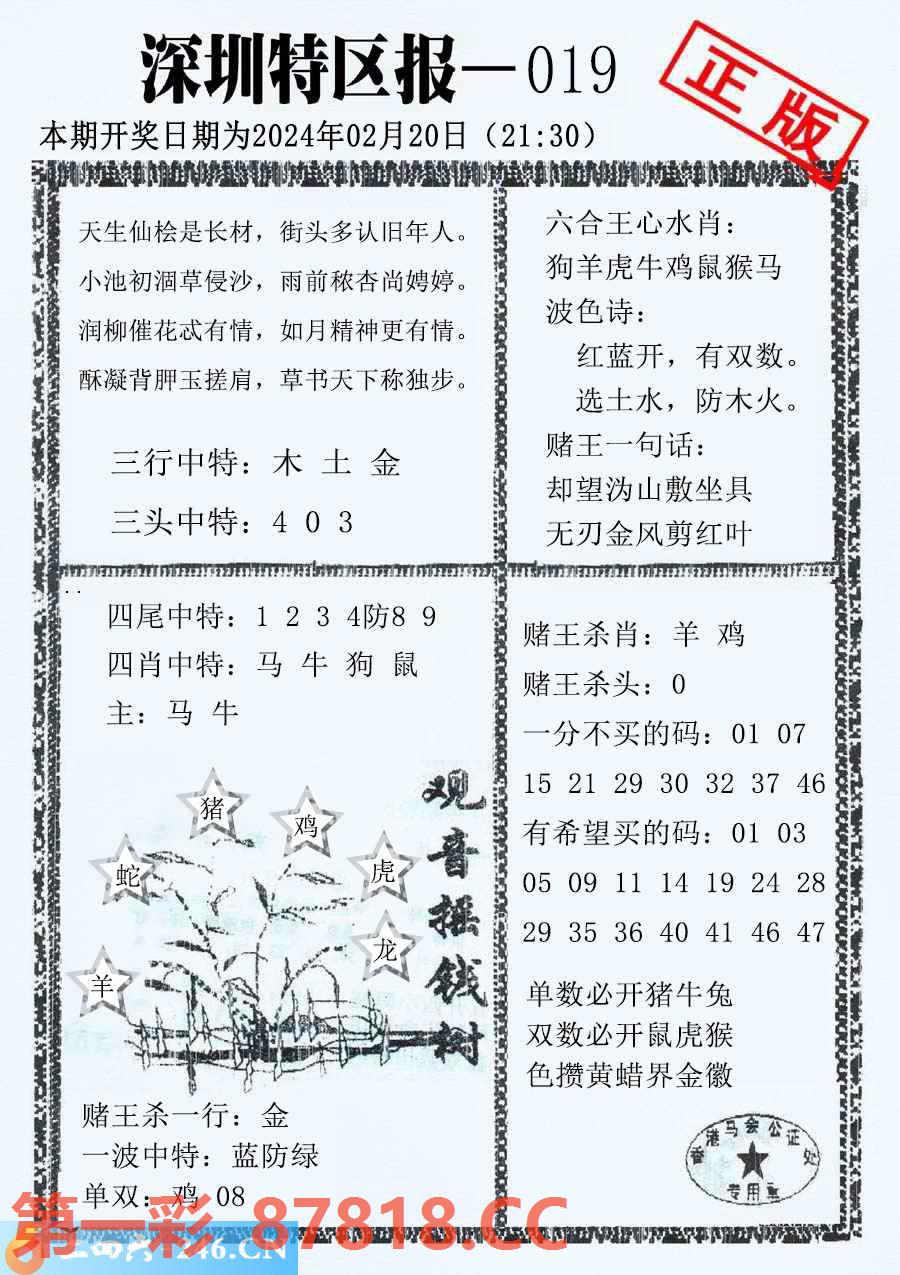 深圳特区报—019
正版
本期开奖日期为2024年02月20日（21:30）
天生仙桧是长材，街头多认旧年人。
小池初涸草侵沙，雨前秾杏尚娉婷。
润柳催花忒有情，如月精神更有情。
酥凝背胛玉搓肩，草书天下称独步。
三行中特：木 土 金
三头中特：4 0 3
六合王心水肖：
狗羊虎牛鸡鼠猴马
波色诗：
红蓝开，有双数。
选土水，防木火。
赌王一句话：
却望沩山敷坐具
无刃金风剪红叶
四尾中特：1 2 3 4防8 9
四肖中特：马 牛 狗 鼠
主：马 牛
猪
鸡
蛇
虎
龙
羊
观音摇钱树
赌王杀一行：金
一波中特：蓝防绿
单双：鸡 08
赌王杀肖：羊 鸡
赌王杀头：0
一分不买的码：01 07
15 21 29 30 32 37 46
有希望买的码：01 03
05 09 11 14 19 24 28
29 35 36 40 41 46 47
单数必开猪牛兔
双数必开鼠虎猴
色攒黄蜡界金徽
香港马会公证处
专用章
第一彩 87818.CC
246.CN